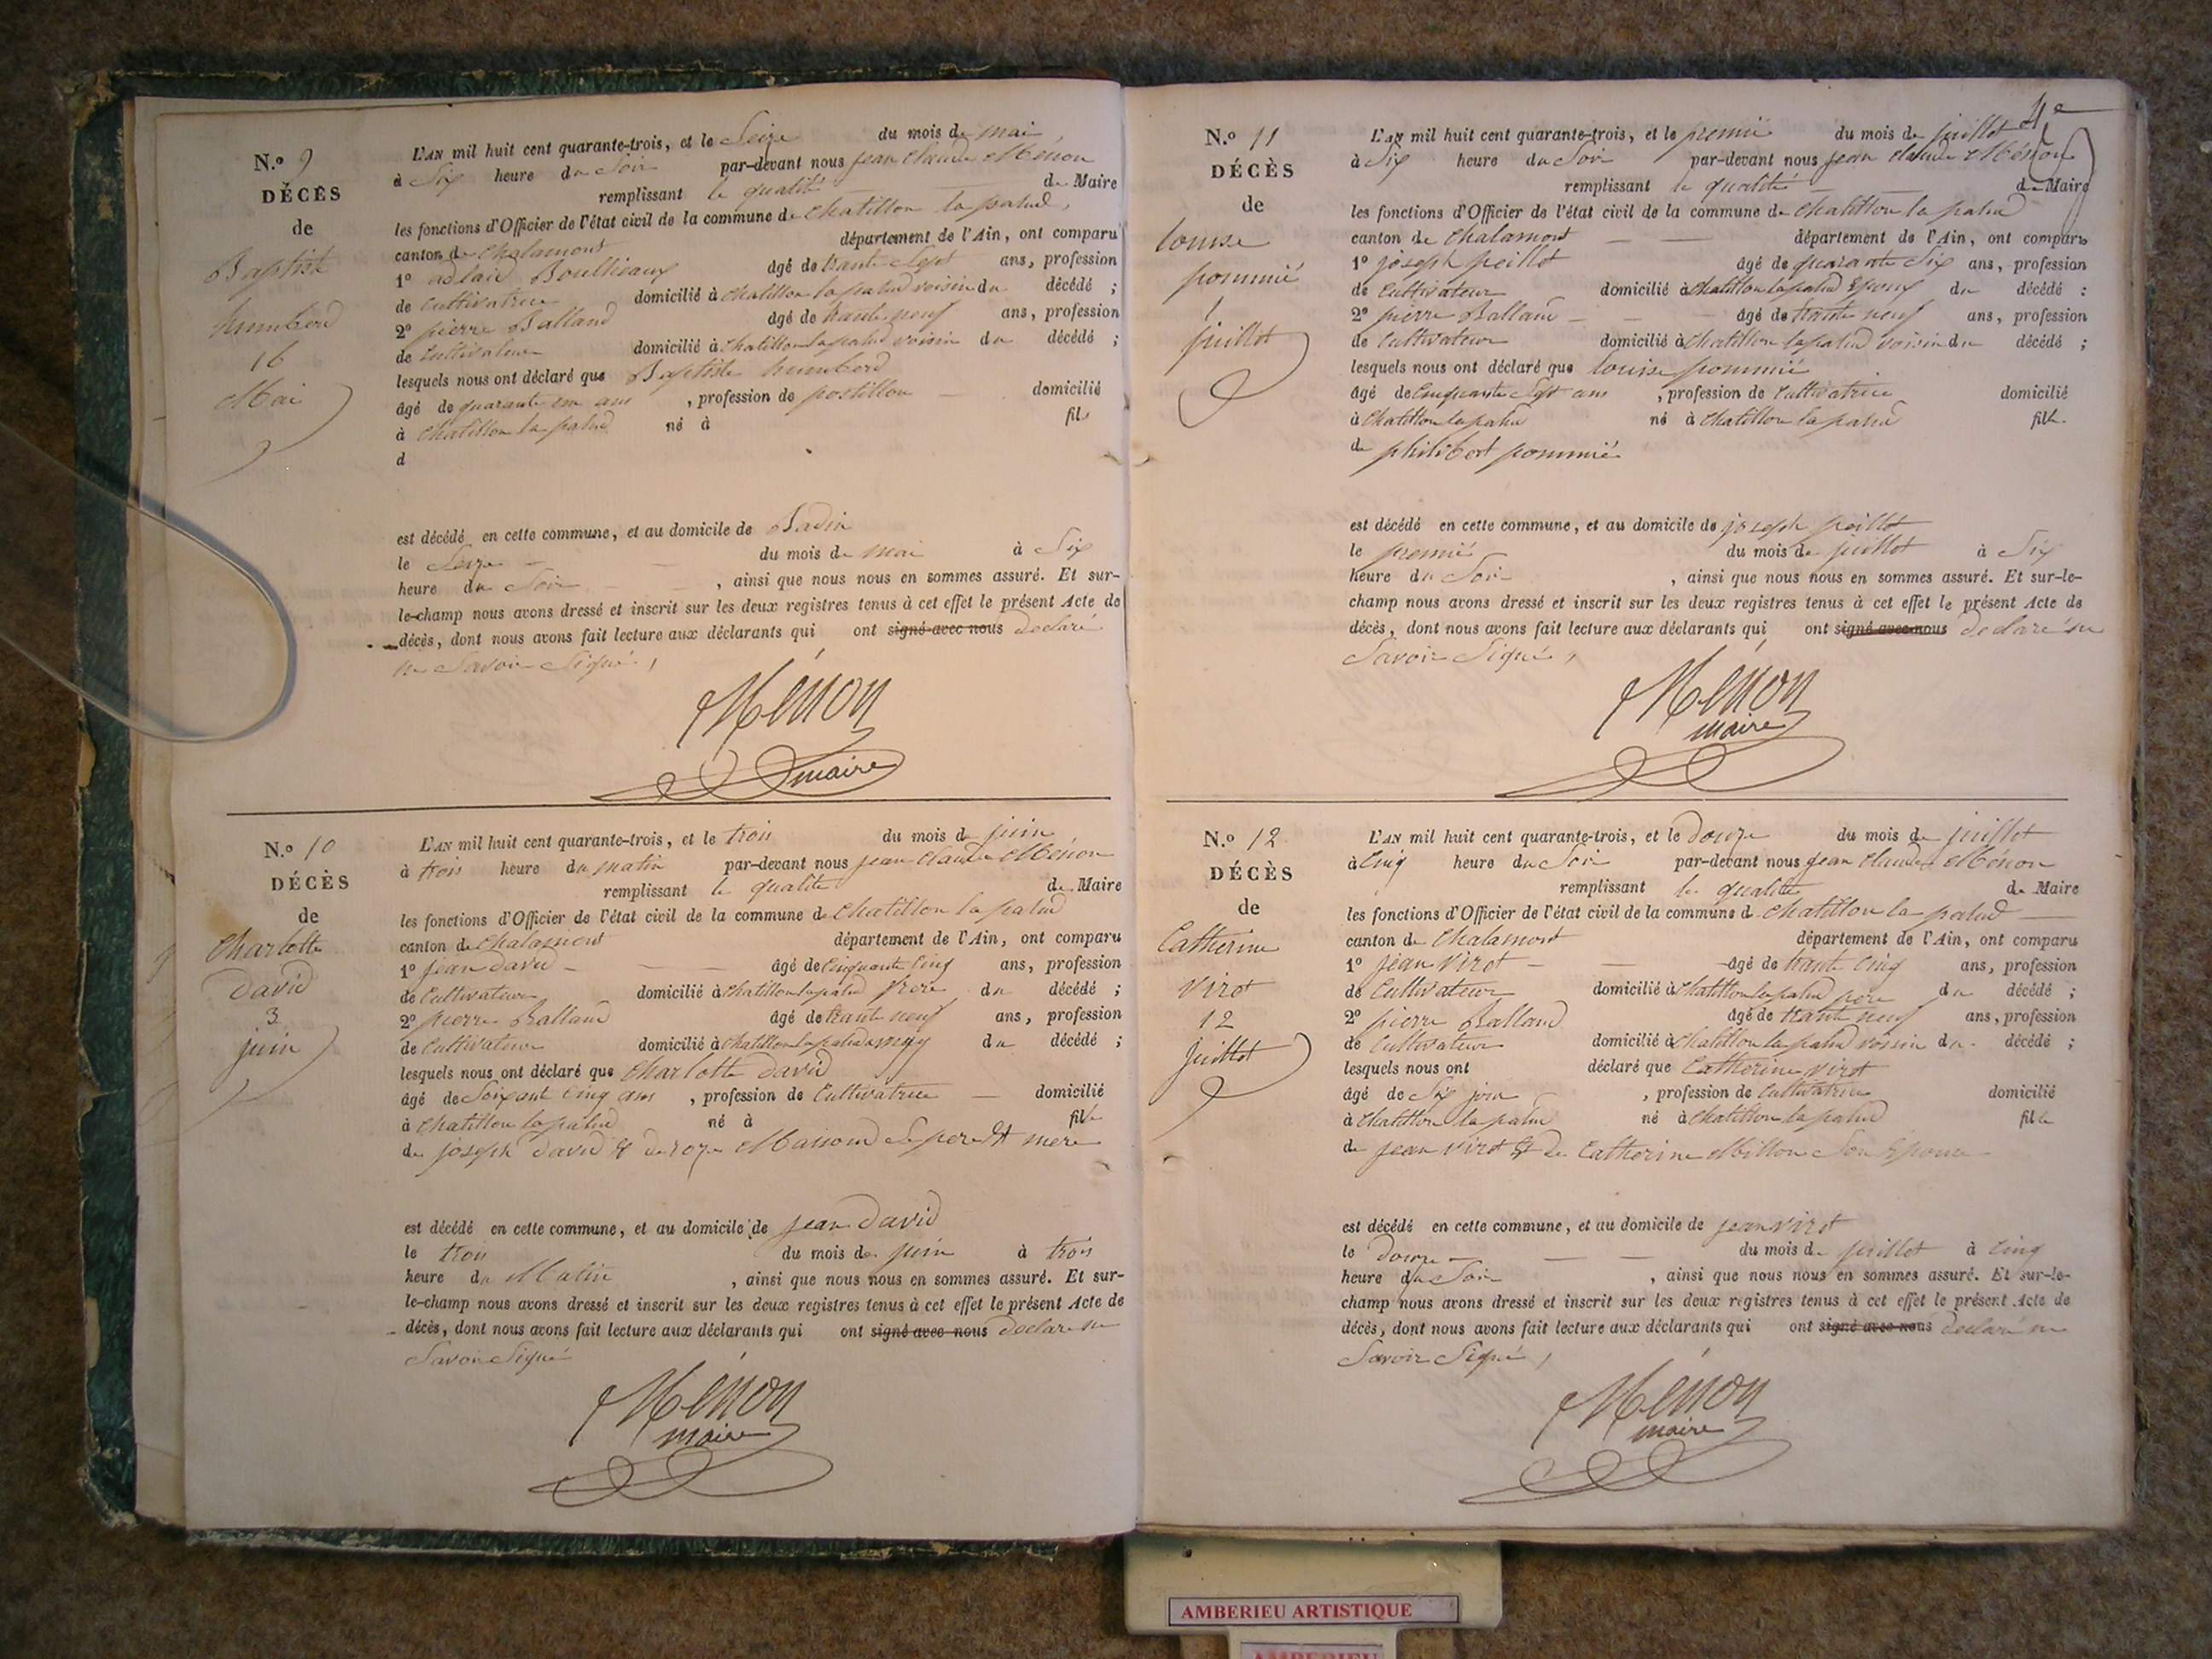 N.º 9
DÉCÈS
de
Baptiste
humberd
16
Mai
L'AN mil huit cent quarante-trois, et le Seize du mois de mai,
à Six heure du Soir par-devant nous jean Claude Ménon
remplissant le qualité de Maire
les fonctions d'Officier de l'état civil de la commune de Chatillon la palud,
canton de Chalamont département de l'Ain, ont comparu
1º adlaid Boullieaux âgé de trante Sept ans, profession
de Cultivatrice domicilié à Chatillon la palud voisin du décédé ;
2º pierre Balland âgé de trante neuf ans, profession
de Cultivateur domicilié à Chatillon la palud voisin du décédé ;
lesquels nous ont déclaré que Baptiste humberd
âgé de quarante un ans , profession de postillon domicilié
à Chatillon la palud né à fils
d
est décédé en cette commune, et au domicile de Badin
le Seize du mois de mai à Six
heure du Soir , ainsi que nous nous en sommes assuré. Et sur-
le-champ nous avons dressé et inscrit sur les deux registres tenus à cet effet le présent Acte de
décès, dont nous avons fait lecture aux déclarants qui ont signé avec nous declaré
ne Savoir Signé,
Ménon
maire
N.º 10
DÉCÈS
de
Charlotte
david
3
juin
L'AN mil huit cent quarante-trois, et le trois du mois de juin
à trois heure du matin par-devant nous jean Claude Ménon
remplissant le qualité de Maire
les fonctions d'Officier de l'état civil de la commune de Chatillon la palud
canton de Chalamont département de l'Ain, ont comparu
1º jean david âgé de Cinquante Cinq ans, profession
de Cultivateur domicilié à Chatillon la palud frere du décédé ;
2º pierre Balland âgé de trante neuf ans, profession
de Cultivateur domicilié à Chatillon la palud amy du décédé ;
lesquels nous ont déclaré que Charlotte david
âgé de Soixant Cinq ans , profession de Cultivatrice domicilié
à Chatillon la palud né à fille
de joseph david et de roze Maisond Se pere et mere
est décédé en cette commune, et au domicile de jean david
le trois du mois de juin à trois
heure du Matin , ainsi que nous nous en sommes assuré. Et sur-
le-champ nous avons dressé et inscrit sur les deux registres tenus à cet effet le présent Acte de
décès, dont nous avons fait lecture aux déclarants qui ont signé avec nous declaré ne
Savoir Signé
Ménon
maire
4e
N.º 11
DÉCÈS
de
louise
pommié
1
juillet
L'AN mil huit cent quarante-trois, et le premié du mois de juillet
à Six heure du Soir par-devant nous jean Claude Ménon
remplissant le qualité de Maire
les fonctions d'Officier de l'état civil de la commune de Chatillon la palud
canton de Chalamont département de l'Ain, ont comparu
1º joseph peillot âgé de quarante Six ans, profession
de Cultivateur domicilié à Chatillon la palud Epoux du décédé ;
2º pierre Balland âgé de trante neuf ans, profession
de Cultivateur domicilié à Chatillon la palud voisin du décédé ;
lesquels nous ont déclaré que louise pommié
âgé de Cinquante Sept ans , profession de Cultivatrice domicilié
à Chatillon la palud né à Chatillon la palud fille
de philibert pommié
est décédé en cette commune, et au domicile de joseph peillot
le premié du mois de juillet à Six
heure du Soir , ainsi que nous nous en sommes assuré. Et sur-le-
champ nous avons dressé et inscrit sur les deux registres tenus à cet effet le présent Acte de
décès, dont nous avons fait lecture aux déclarants qui ont signé avec nous declaré ne
Savoir Signé,
Ménon
maire
N.º 12
DÉCÈS
de
Catherine
virot
12
Juillet
L'AN mil huit cent quarante-trois, et le douze du mois de juillet
à Cinq heure du Soir par-devant nous jean Claude Ménon
remplissant le qualité de Maire
les fonctions d'Officier de l'état civil de la commune d Chatillon la palud
canton de Chalamont département de l'Ain, ont comparu
1º jean virot âgé de trante Cinq ans, profession
de Cultivateur domicilié à Chatillon la palud pere du décédé ;
2º pierre Balland âgé de trante neuf ans, profession
de Cultivateur domicilié à Chatillon la palud voisin du décédé ;
lesquels nous ont déclaré que Catherine virot
âgé de Six jour , profession de Cultivatrice domicilié
à Chatillon la palud né à Chatillon la palud fille
de jean virot et de Catherine Millon Son Epouse
est décédé en cette commune, et au domicile de jean virot
le douze du mois de juillet à Cinq
heure du Soir , ainsi que nous nous en sommes assuré. Et sur-le-
champ nous avons dressé et inscrit sur les deux registres tenus à cet effet le présent Acte de
décès, dont nous avons fait lecture aux déclarants qui ont signé avec nous declaré ne
Savoir Signé,
Ménon
maire
AMBERIEU ARTISTIQUE
AMBERIEU